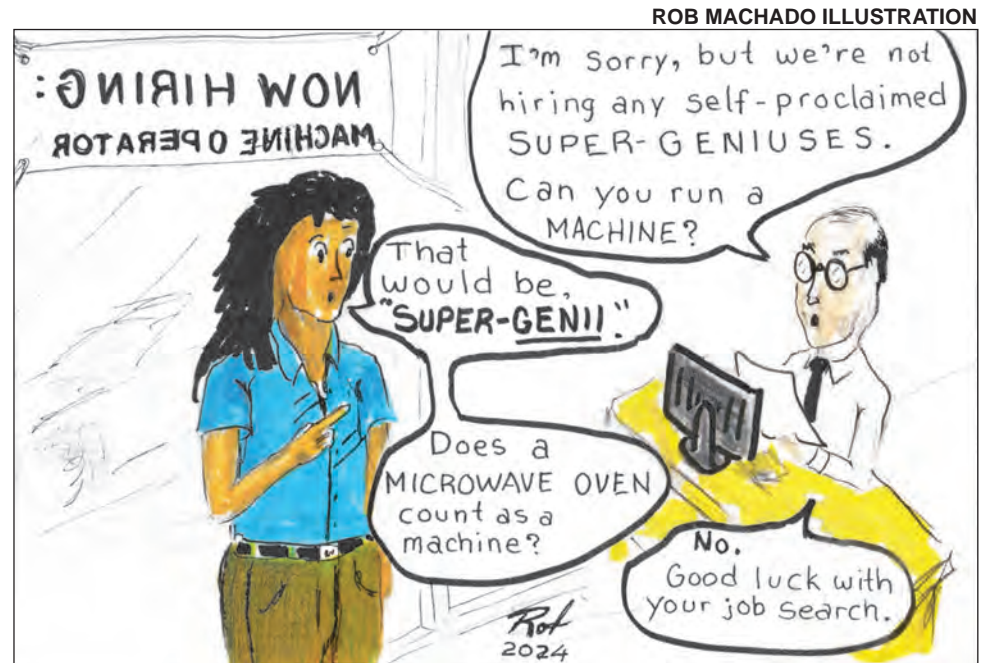 ROB MACHADO ILLUSTRATION
NOW HIRING:
MACHINE OPERATOR
I'm sorry, but we're not
hiring any self-proclaimed
SUPER-GENIUSES.
Can you run a
MACHINE?
That
would be,
"SUPER-GENII."
Does a
MICROWAVE OVEN
count as a
machine?
No.
Good luck with
your job search.
Rob
2024